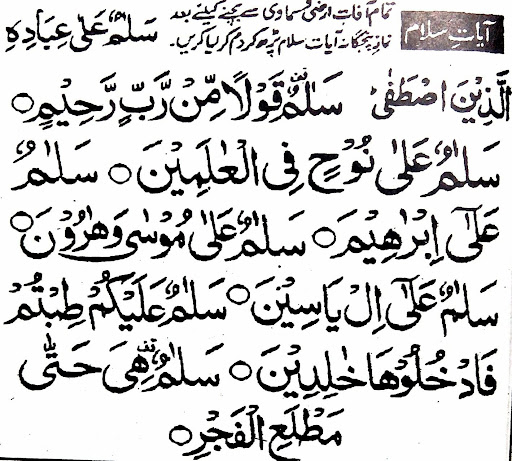 آیاتِ سلام
تمام آفات ارضی و سماوی سے بچنے کیلئے بعد
نماز پنجگانہ آیات سلام پڑھ کر دم کر لیا کریں۔
سَلٰمٌ عَلٰی عِبَادِہِ
الَّذِیْنَ اصْطَفٰی سَلٰمٌ قَوْلًا مِّنْ رَّبٍّ رَّحِیْمٍ ○
سَلٰمٌ عَلٰی نُوْحٍ فِی الْعٰلَمِیْنَ ○ سَلٰمٌ
عَلٰۤی اِبْرٰھِیْمَ ○ سَلٰمٌ عَلٰی مُوْسٰی وَھٰرُوْنَ ○
سَلٰمٌ عَلٰۤی اِلْ یَاسِیْنَ ○ سَلٰمٌ عَلَیْکُمْ طِبْتُمْ
فَادْخُلُوْھَا خٰلِدِیْنَ ○ سَلٰمٌ ھِیَ حَتّٰی
مَطْلَعِ الْفَجْرِ ○